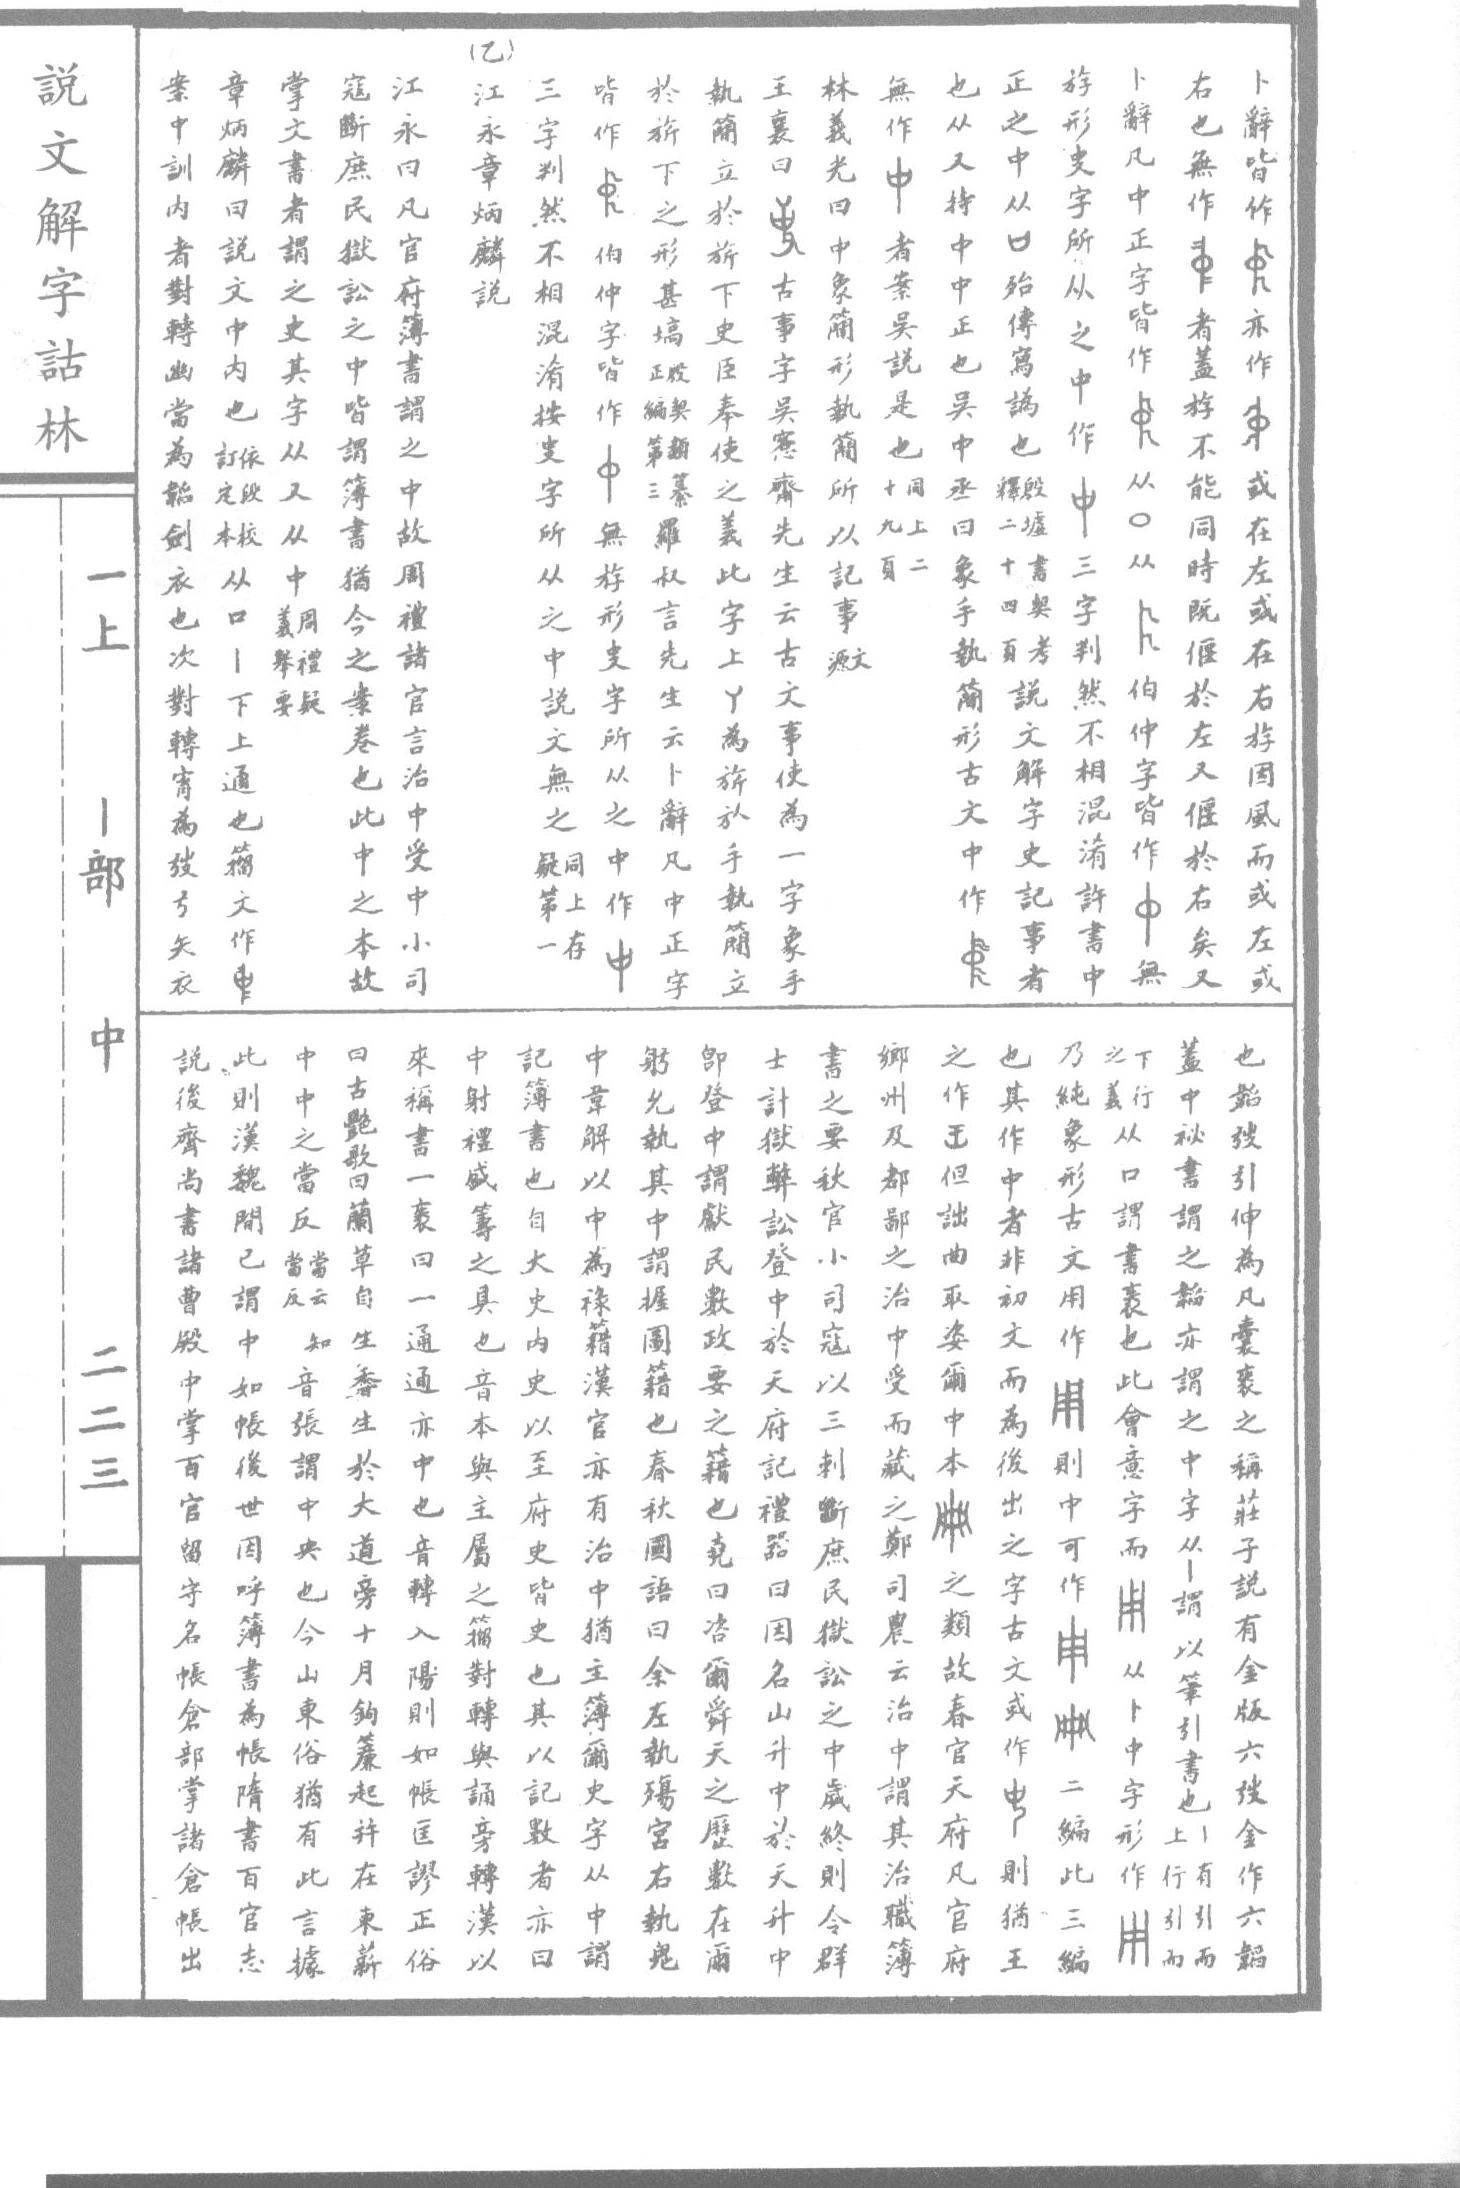 說文解字詁林
一上 丨部 中 二二三
卜辭皆作亦作或在左或在右斿因風而或左或
右也無作者蓋斿不能同時既偃於左又偃於右矣又
卜辭凡中正字皆作从〇从伯仲字皆作無
斿形史字所从之中作三字判然不相混淆許書中
正之中从口殆傳寫譌也殷墟書契考釋二十四頁說文解字史記事者
也从又持中中正也吳中丞曰象手執簡形古文中作
無作者案吳說是也同上二十九頁
林義光曰中象簡形執簡所以記事文源
王襄曰古事字吳愙齋先生云古文事使為一字象手
執簡立於旂下史臣奉使之義此字上丫為旂於手執簡立
於旂下之形甚塙殷契類纂正編第三羅叔言先生云卜辭凡中正字
皆作伯仲字皆作無斿形史字所从之中作
三字判然不相混淆按史字所从之中說文無之同上存疑第一
(乙)
江永章炳麟說
江永曰凡官府簿書謂之中故周禮諸官言治中受中小司
寇斷庶民獄訟之中皆謂簿書猶今之案卷也此中之本故
掌文書者謂之史其字从又从中周禮疑義舉要
章炳麟曰說文中內也依段校訂定本从口丨下上通也籀文作
案中訓內者對轉幽當為韜劍衣也次對轉宵為弢弓矢衣
也韜弢引伸為凡囊褱之稱莊子說有金版六弢金作六韜
蓋中祕書謂之韜亦謂之中字从丨謂以筆引書也丨有引而上行引而
下行之義从口謂書褱也此會意字而从卜中字形作
乃純象形古文用作則中可作二編此三編
也其作中者非初文而為後出之字古文或作則猶王
之作但詘曲取姿爾中本之類故春官天府凡官府
鄉州及都鄙之治中受而藏之鄭司農云治中謂其治職簿
書之要秋官小司寇以三刺斷庶民獄訟之中歲終則令群
士計獄弊訟登中於天府記禮器曰因名山升中於天升中
卽登中謂獻民數政要之籍也堯曰咨爾舜天之歷數在爾
躬允執其中謂握圖籍也春秋國語曰余左執殤宮右執鬼
中韋解以中為祿籍漢官亦有治中猶主簿爾史字从中謂
記簿書也自大史內史以至府史皆史也其以記數者亦曰
中射禮盛筭之具也音本與主屬之籀對轉與誦旁轉漢以
來稱書一褱曰一通通亦中也音轉入陽則如帳匡謬正俗
曰古艷歌曰蘭草自生香生於大道旁十月鉤簾起幷在束薪
中中之當反當云當反知音張謂中央也今山東俗猶有此言據
此則漢魏間已謂中如帳後世因呼簿書為帳隋書百官志
說後齊尚書諸曹殿中掌百官留守名帳倉部掌諸倉帳出